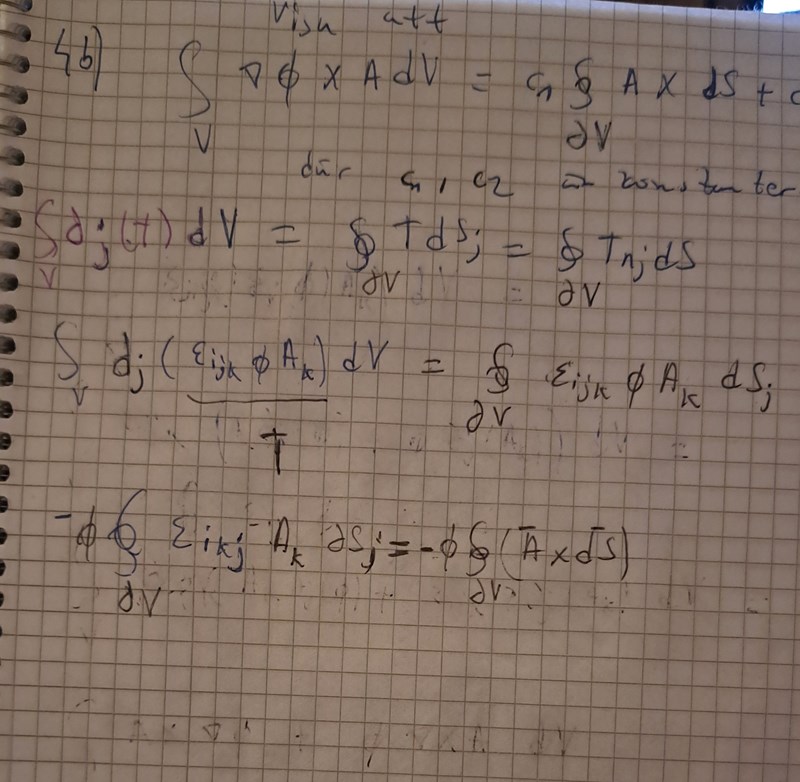 Visa att
4b) ∫_V ∇ϕ × A dV = c₁ ∮_∂V A × dS +
där c₁, c₂ är konstanter
∫_V ∂_j (T) dV = ∮_∂V T dS_j = ∮_∂V T n_j dS
∫_V ∂_j (ε_ijk ϕ A_k) dV = ∮_∂V ε_ijk ϕ A_k dS_j
T
-ϕ ∮_∂V ε_ikj A_k dS_j = -ϕ ∮_∂V (A̅ × dS̅)